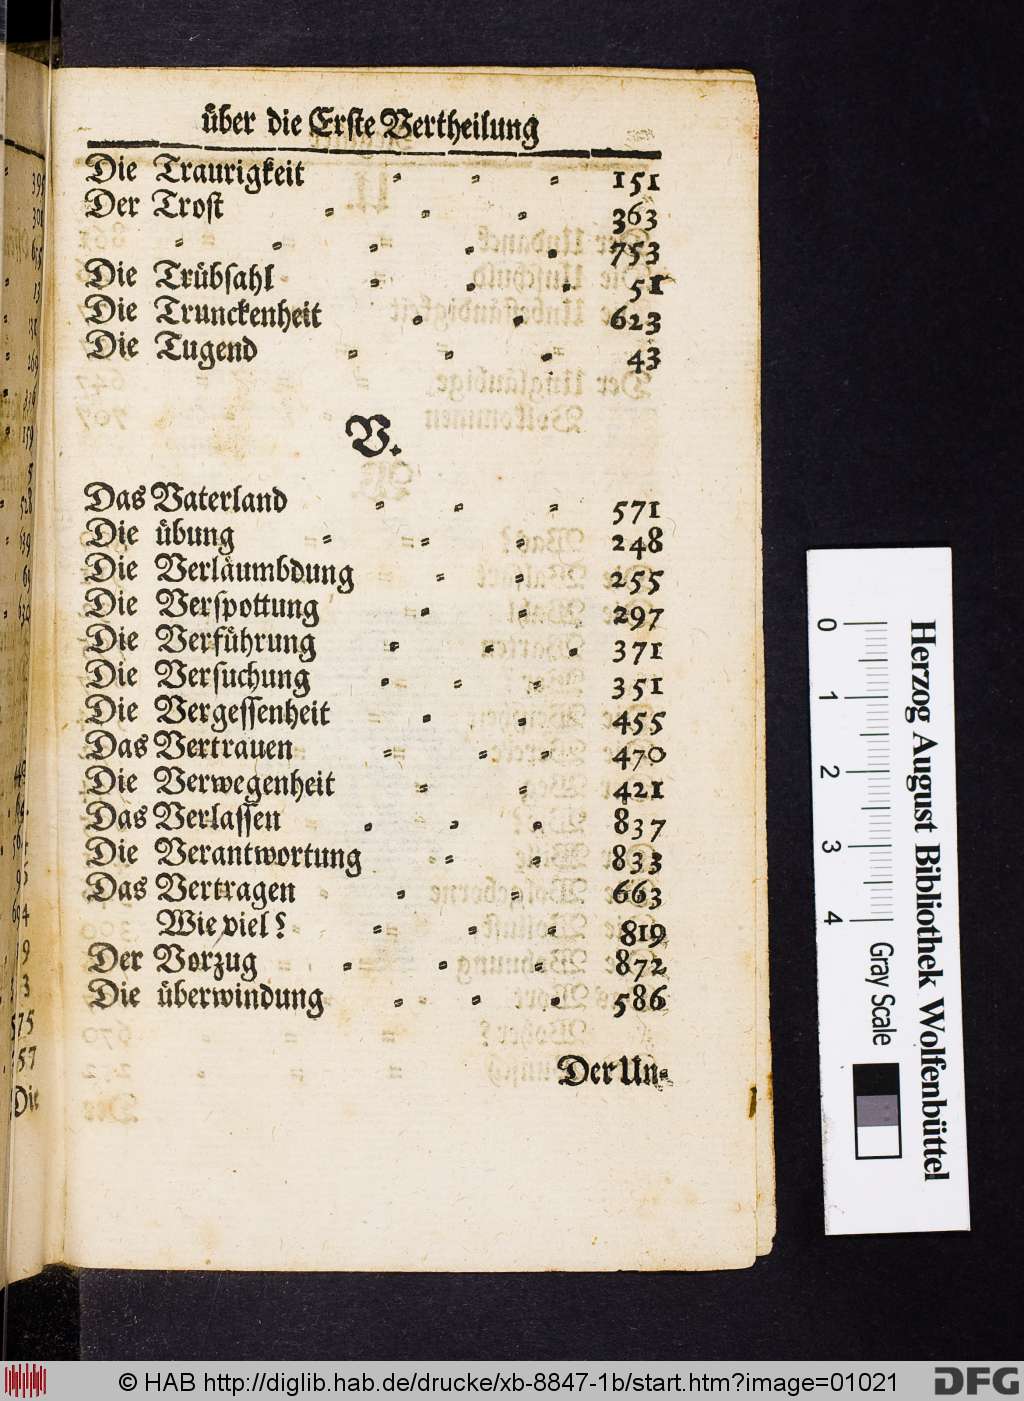 über die Erste Vertheilung
Die Traurigkeit = = = 151
Der Trost = = = 363
= = = = = 753
Die Trübsahl = = = 51
Die Trunckenheit = = 623
Die Tugend = = = 43
V.
Das Vaterland = = = 571
Die übung = = = 248
Die Verläumbdung = = 255
Die Verspottung = = 297
Die Verführung = = = 371
Die Versuchung = = = 351
Die Vergessenheit = = 455
Das Vertrauen = = = 470
Die Verwegenheit = = 421
Das Verlassen = = = 837
Die Verantwortung = = 833
Das Vertragen = = 663
Wie viel? = = = 819
Der Vorzug = = = 872
Die überwindung = = = 586
Der Un=
Die
Herzog August Bibliothek Wolfenbüttel
0 1 2 3 4
Gray Scale
© HAB http://diglib.hab.de/drucke/xb-8847-1b/start.htm?image=01021
DFG